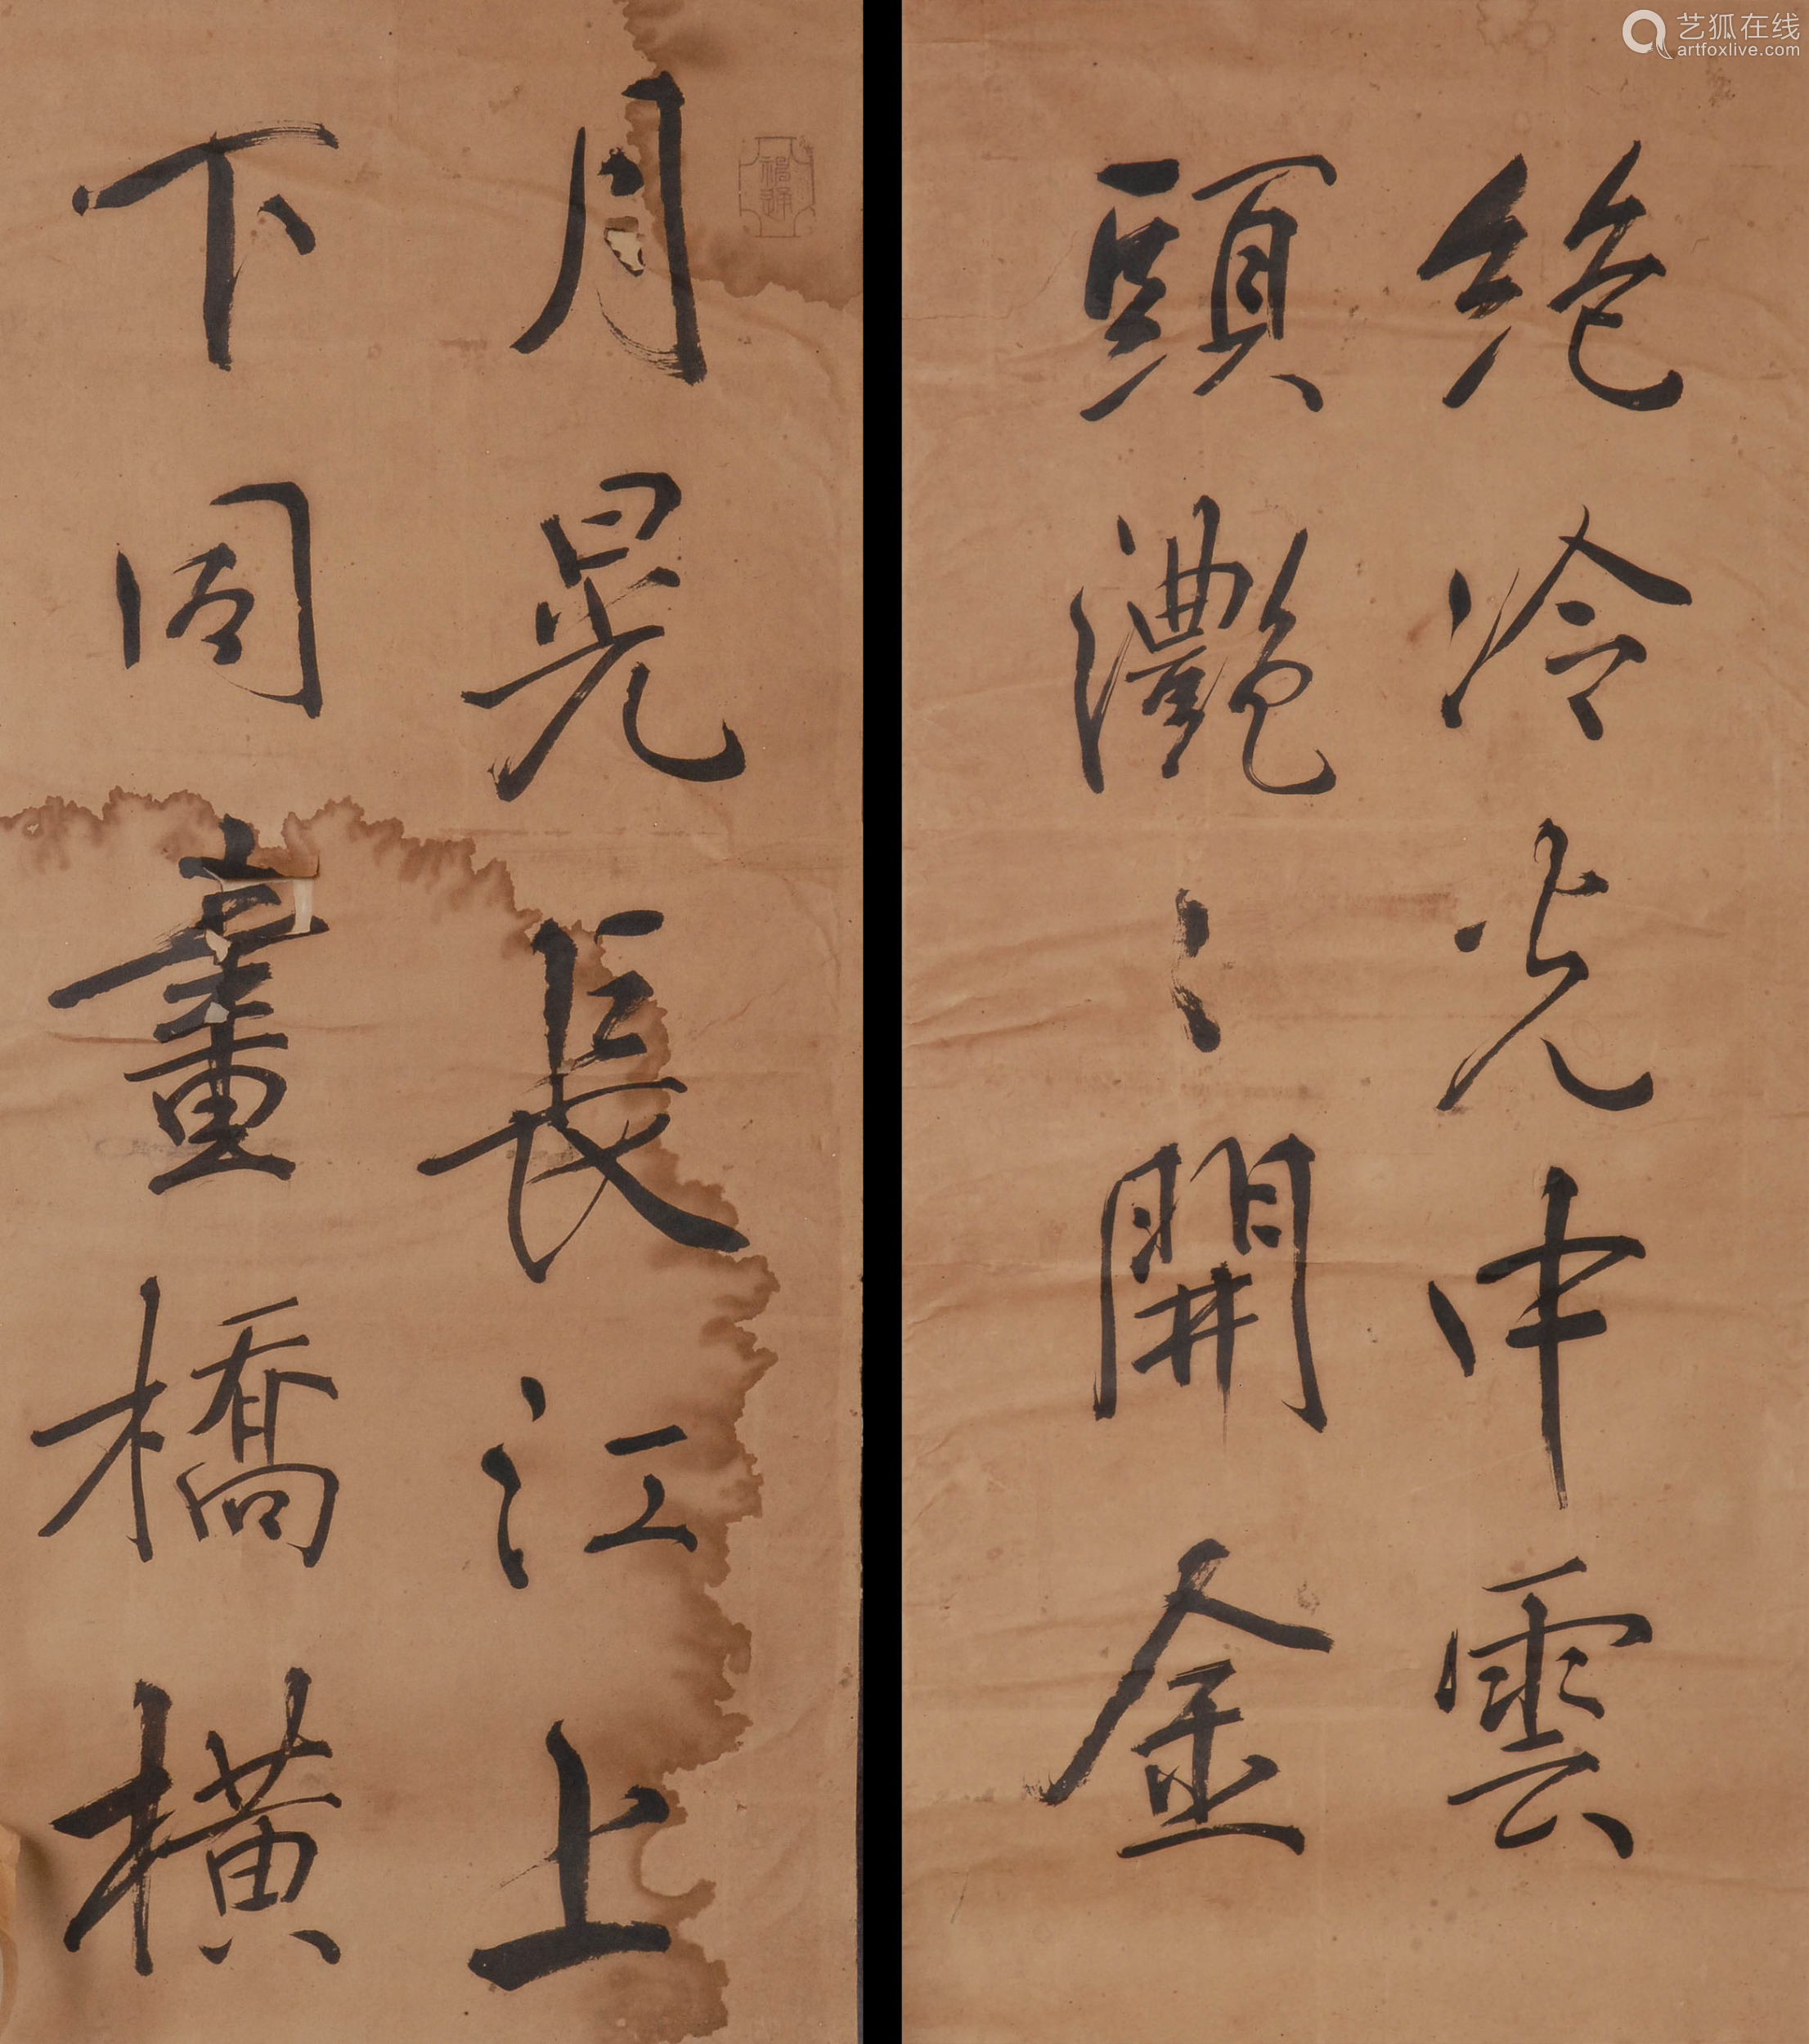 艺狐在线
artfoxlive.com
絶冷光中雲
頭灔〻開金
月晃長江上
下同畫橋橫